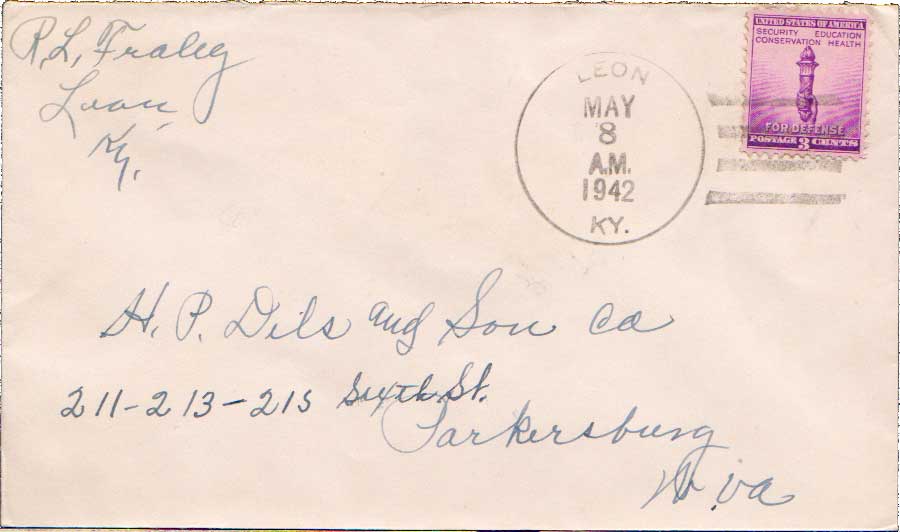 R. L. Fraley
Leon
Ky.
LEON
MAY
8
A.M.
1942
KY.
UNITED STATES OF AMERICA
SECURITY EDUCATION
CONSERVATION HEALTH
FOR DEFENSE
POSTAGE 3 CENTS
H. P. Dils and Son Co
211-213-215 Sixth St.
Parkersburg
W. Va